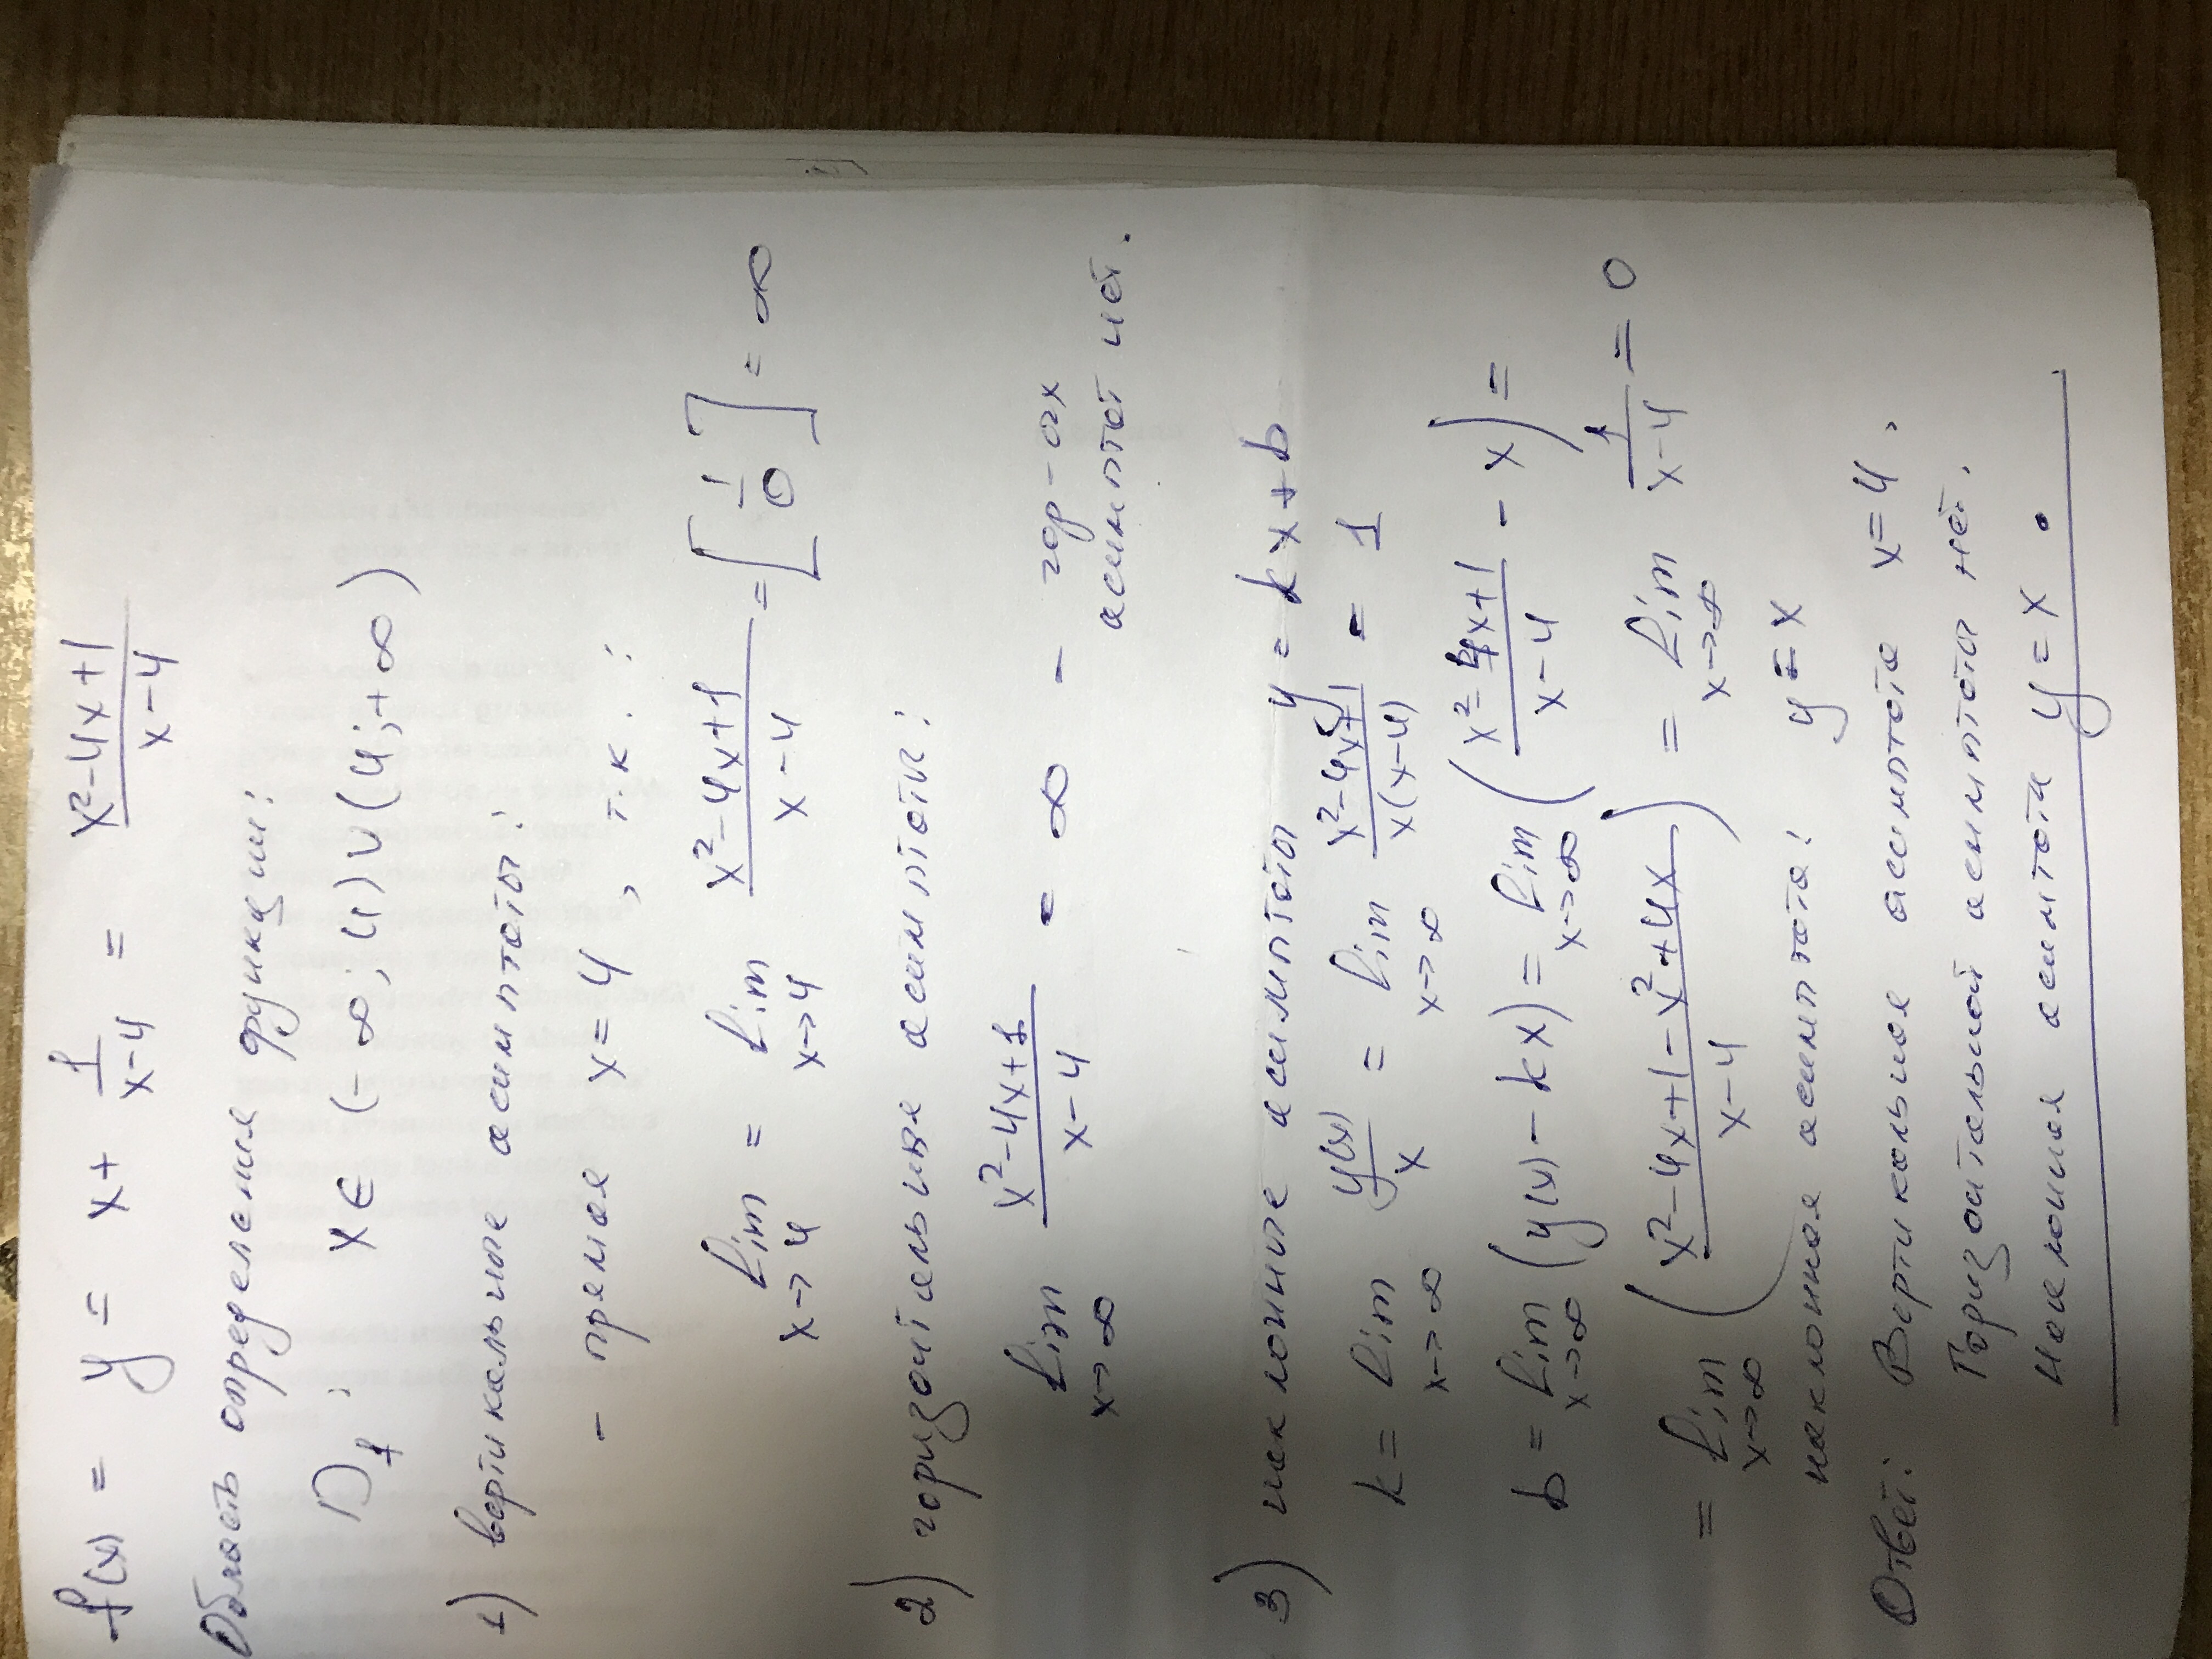 f(x) = y = x + 1/(x-4) = (x²-4x+1)/(x-4)
Область определения функции:
D_f : x ∈ (-∞; 4) ∪ (4; +∞)
1) вертикальные асимптоты:
- прямая x=4, т.к. :
lim x→4 = lim x→4 (x²-4x+1)/(x-4) = [1/0] = ∞
2) горизонтальные асимптоты:
lim x→∞ (x²-4x+1)/(x-4) = ∞ - гор-ых
асимптот нет.
3) наклонные асимптоты y = kx+b
k = lim x→∞ y(x)/x = lim x→∞ (x²-4x+1)/(x(x-4)) = 1
b = lim x→∞ (y(x) - kx) = lim x→∞ ((x²-4x+1)/(x-4) - x) =
= lim x→∞ ((x²-4x+1-x²+4x)/(x-4)) = lim x→∞ 1/(x-4) = 0
наклонная асимптота: y = x
Ответ: Вертикальная асимптота x=4,
Горизонтальной асимптоты нет,
Наклонная асимтота y=x.